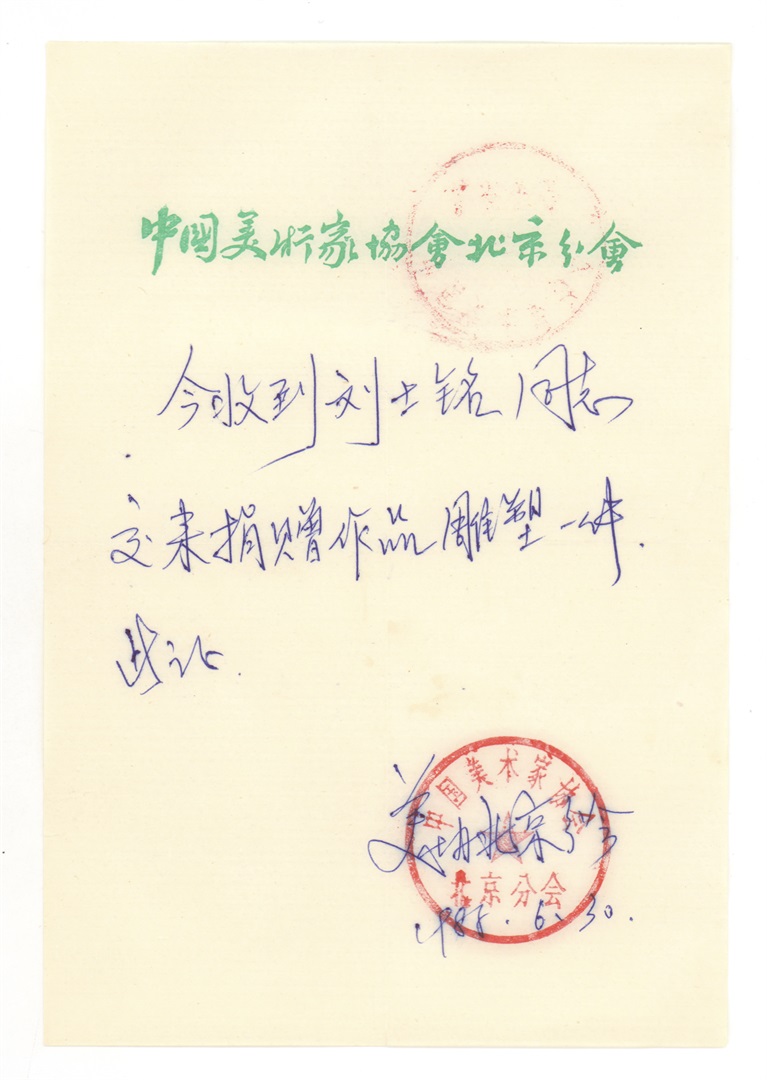 中国美術家協會北京分會
今收到刘士铭同志
交来捐赠作品雕塑一件.
此证.
中国美术家协会
北京分会
美协北京分会
1985.6.30.